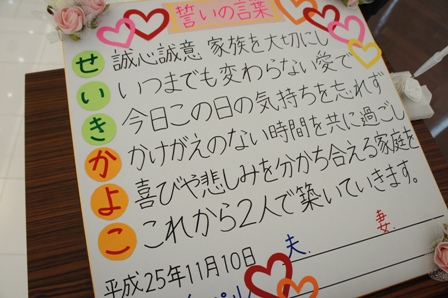 誓いの言葉
せ 誠心誠意 家族を大切にし
い いつまでも変わらない愛で
き 今日この日の気持ちを忘れず
か かけがえのない時間を共に過ごし
よ 喜びや悲しみを分かち合える家庭を
こ これから2人で築いていきます。
平成25年11月10日 夫 妻